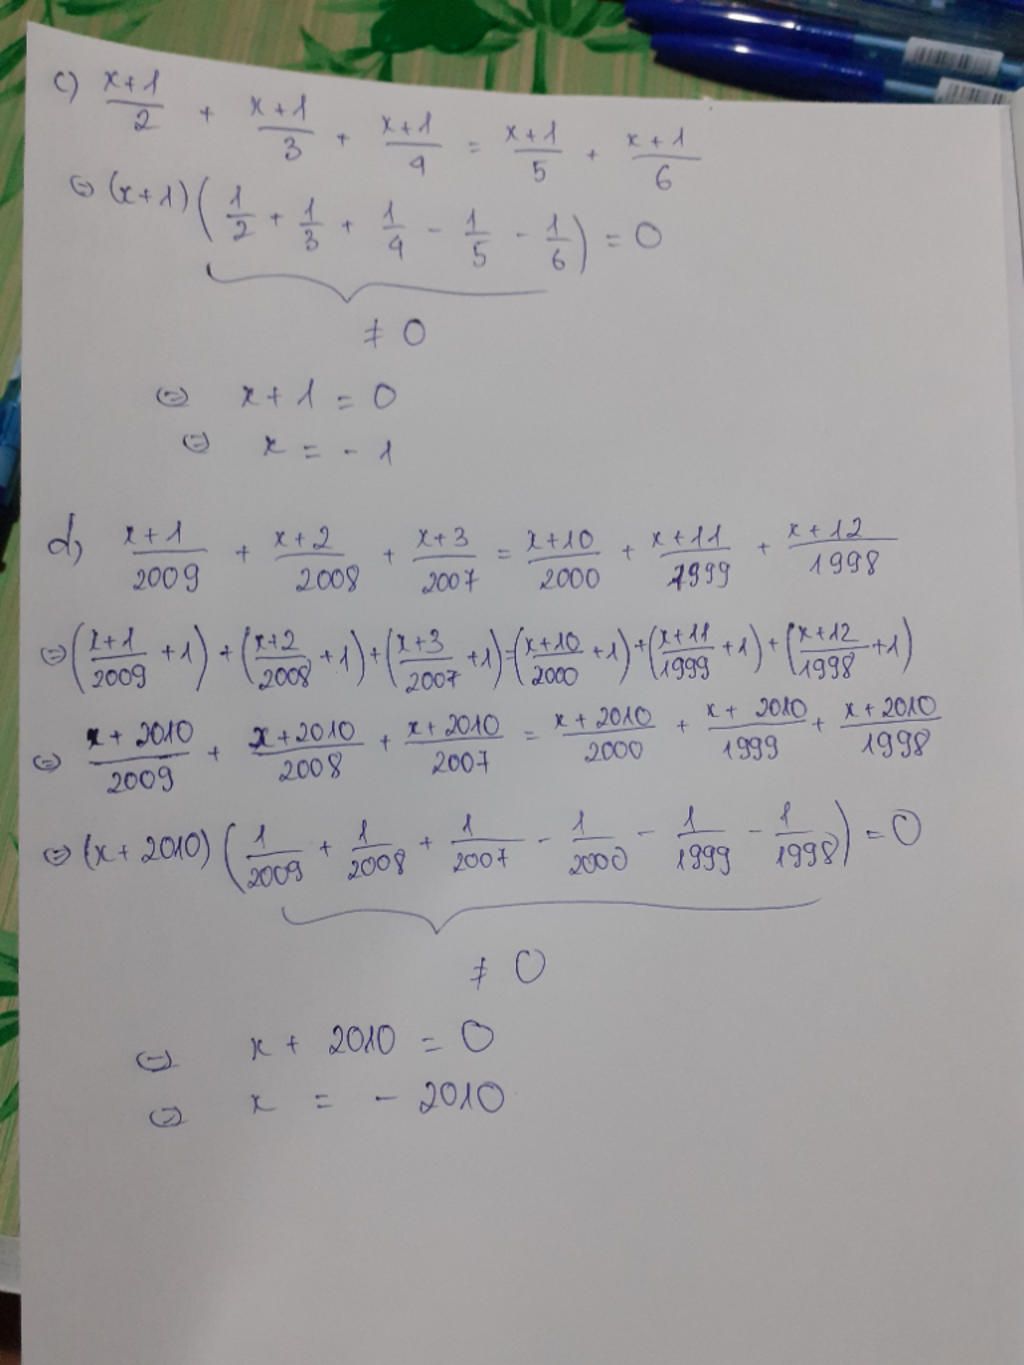 c) (x+1)/2 + (x+1)/3 + (x+1)/4 = (x+1)/5 + (x+1)/6
⇔ (x+1)(1/2 + 1/3 + 1/4 - 1/5 - 1/6) = 0
≠ 0
⇔ x+1 = 0
⇔ x = -1
d, (x+1)/2009 + (x+2)/2008 + (x+3)/2007 = (x+10)/2000 + (x+11)/1999 + (x+12)/1998
⇔ ((x+1)/2009 +1) + ((x+2)/2008 +1) + ((x+3)/2007 +1) = ((x+10)/2000 +1) + ((x+11)/1999 +1) + ((x+12)/1998 +1)
⇔ (x+2010)/2009 + (x+2010)/2008 + (x+2010)/2007 = (x+2010)/2000 + (x+2010)/1999 + (x+2010)/1998
⇔ (x+2010)(1/2009 + 1/2008 + 1/2007 - 1/2000 - 1/1999 - 1/1998) = 0
≠ 0
⇔ x + 2010 = 0
⇔ x = -2010